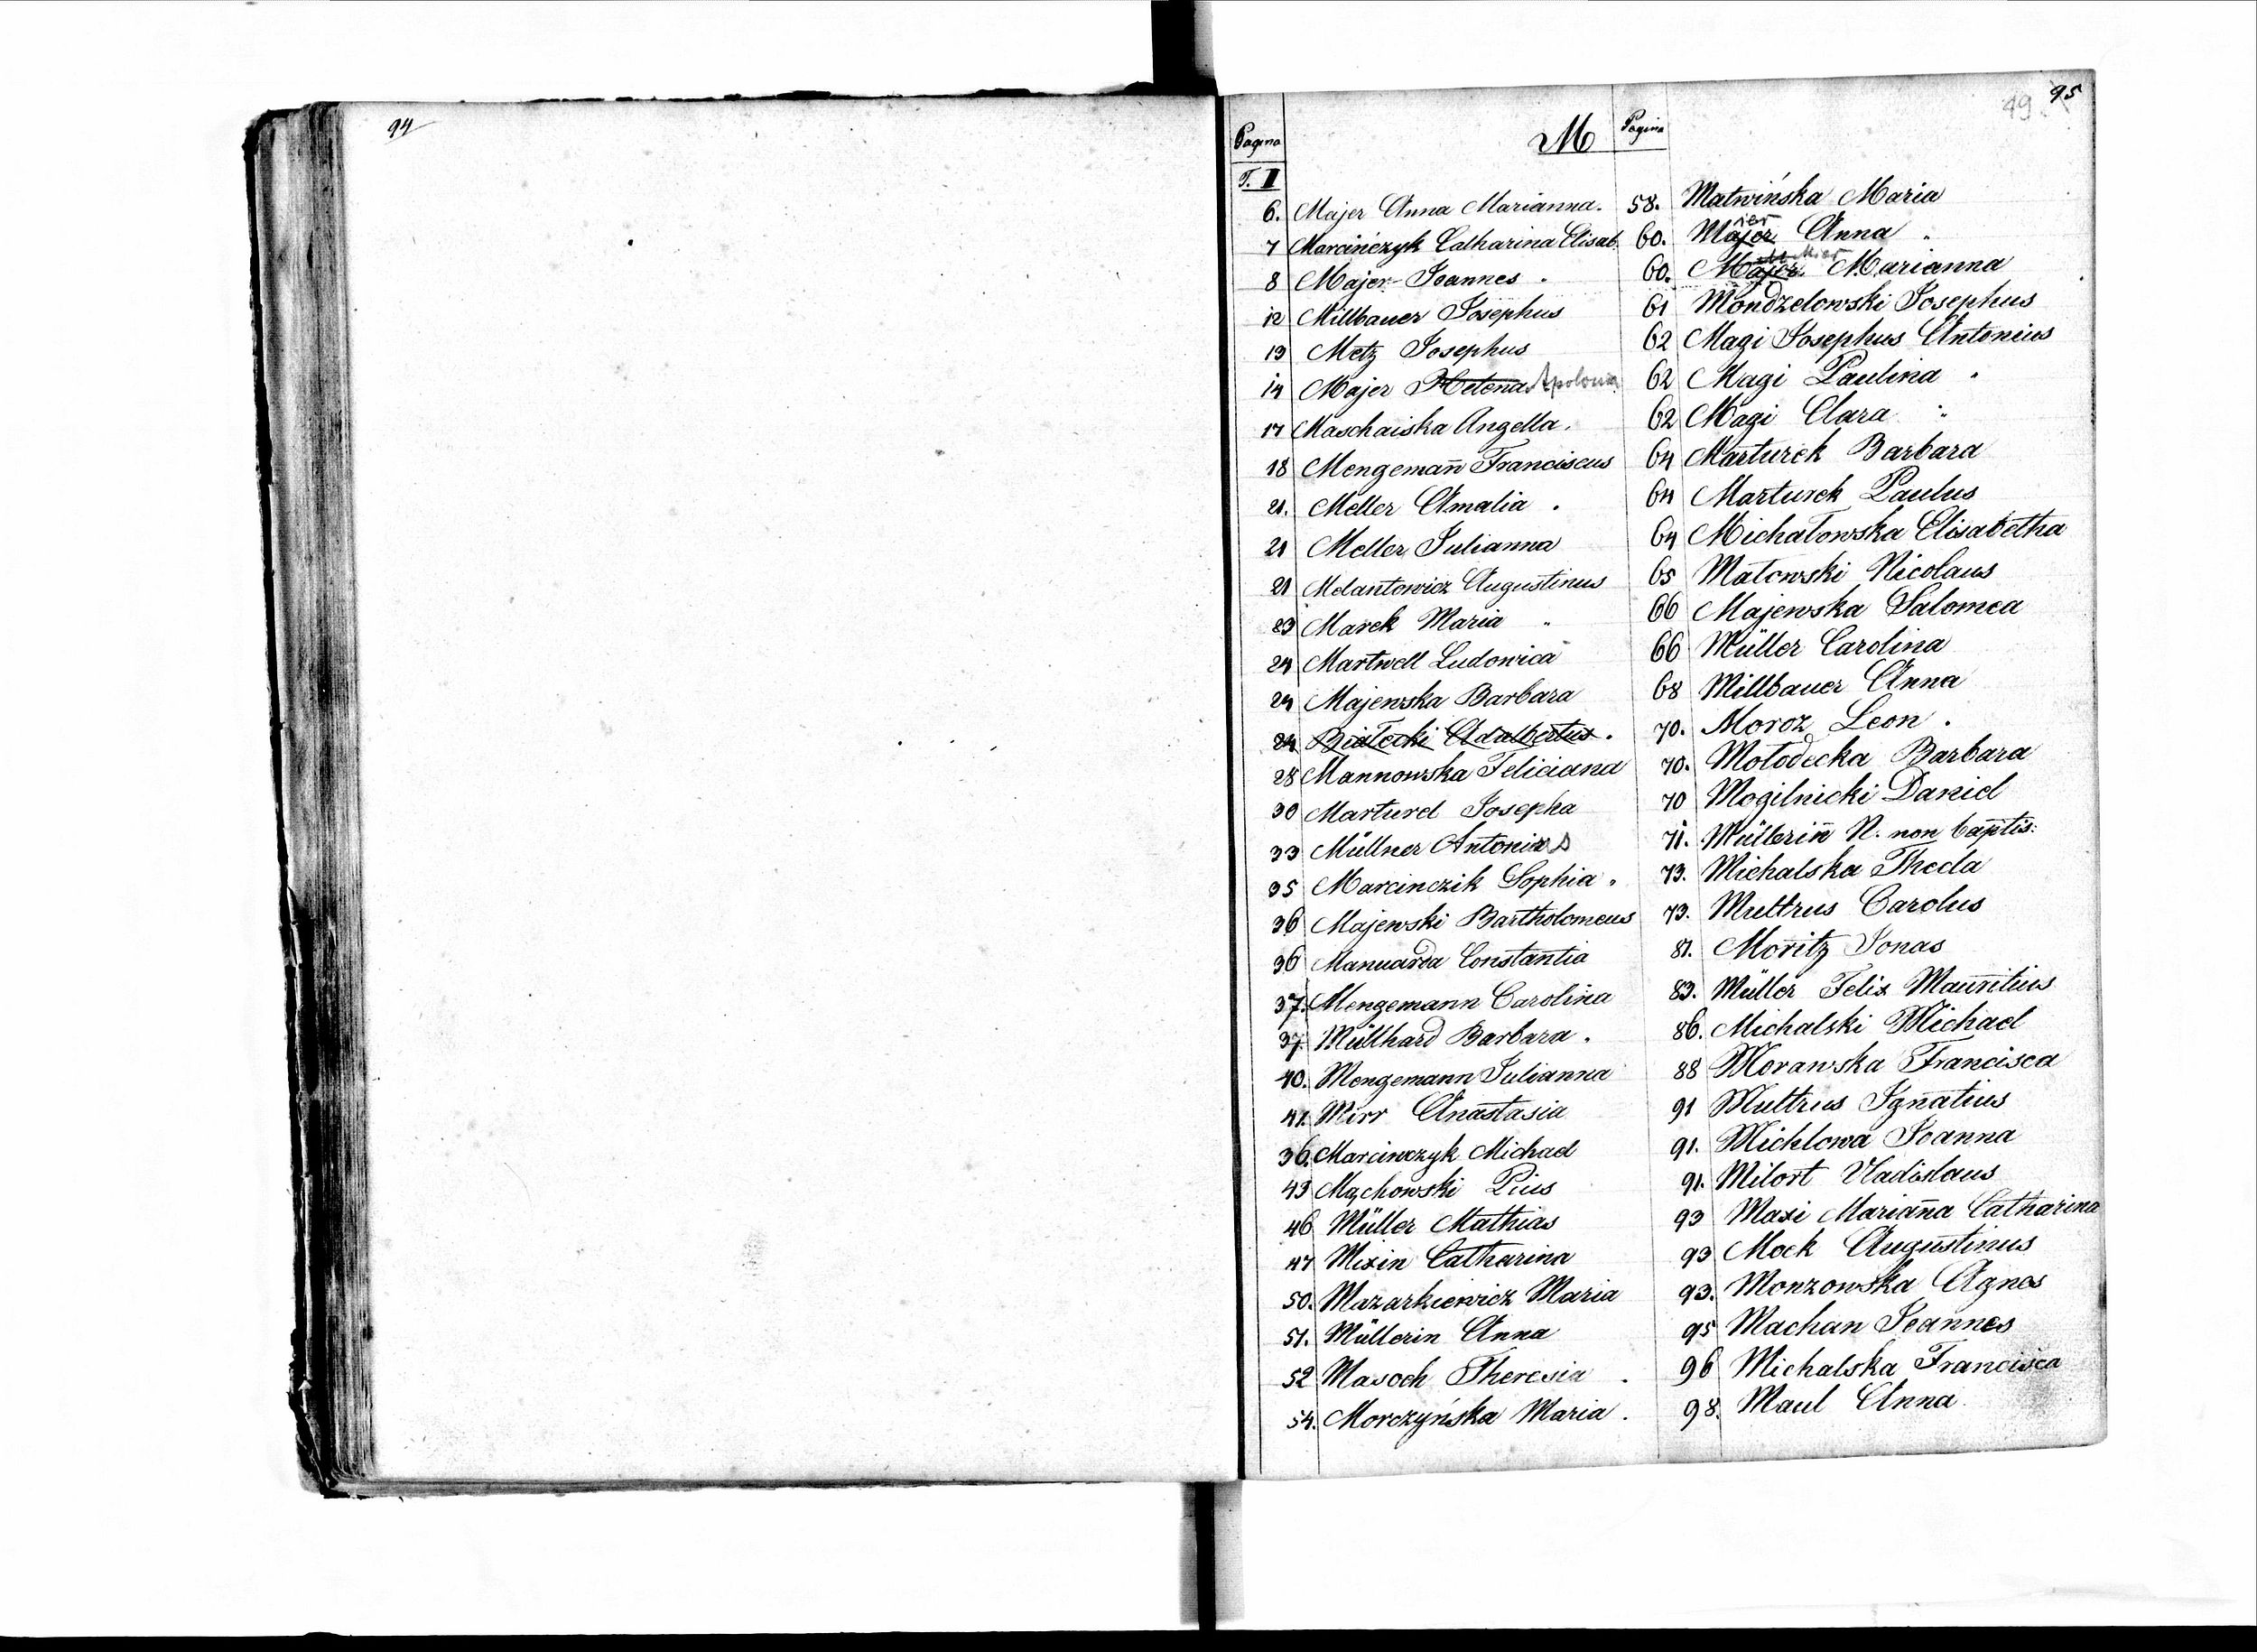 94
49 95
Pagina M Pagina
T. II
6. Majer Anna Marianna.
7 Marcińczyk Catharina Elisab.
8 Majer Joannes .
12 Millbauer Josephus
13 Metz Josephus
14 Majer Helena Apolonia
17 Maschaiska Angella.
18 Mengemañ Franciscus
21. Meller Amalia .
21 Meller Julianna
21 Melantowicz Augustinus
23 Marek Maria "
24 Martwell Ludowica
24 Majewska Barbara
24 Białecki Adalbertus.
28 Mannowska Feliciana
30 Marturel Josepha
33 Müllner Antonius
35 Marcinczik Sophia "
36 Majewski Bartholomeus
36 Manuarda Constantia
37. Mengemann Carolina
37. Müllhard Barbara .
40. Mengemann Julianna
41. Mirr Anastasia
36. Marcinczyk Michael
43 Mąchowski Pius
46 Müller Mathias
47 Mixin Catharina
50. Mazarkiewicz Maria
51. Müllerin Anna
52 Masoch Theresia .
54. Morczyńska Maria .
58. Matwińska Maria
60. Majer ier Anna "
60. Majer Marianna
61 Mondzelowski Josephus
62 Magi Josephus Antonius
62 Magi Paulina "
62 Magi Clara "
64 Marturek Barbara
64 Marturek Paulus
64 Michałowska Elisabetha
65 Małowski Nicolaus
66 Majewska Salomea
66 Müller Carolina
68 Millbauer Anna
70. Moroz Leon .
70. Mołodecka Barbara
70 Mogilnicki Daniel
71. Müllerin̄ N. non baptis:
73. Michalska Thecla
73. Multrus Carolus
81. Moritz Jonas
83. Müller Felix Mauritius
86. Michalski Michael
88 Morawska Francisca
91 Multrus Ignatius
91. Michlowa Joanna
91. Milort Vladislaus
93 Maxi Mariañna Catharina
93 Mock Augustinus
93. Monzowska Agnes
95 Machan Joannes
96 Michalska Francisca
98. Maul Anna